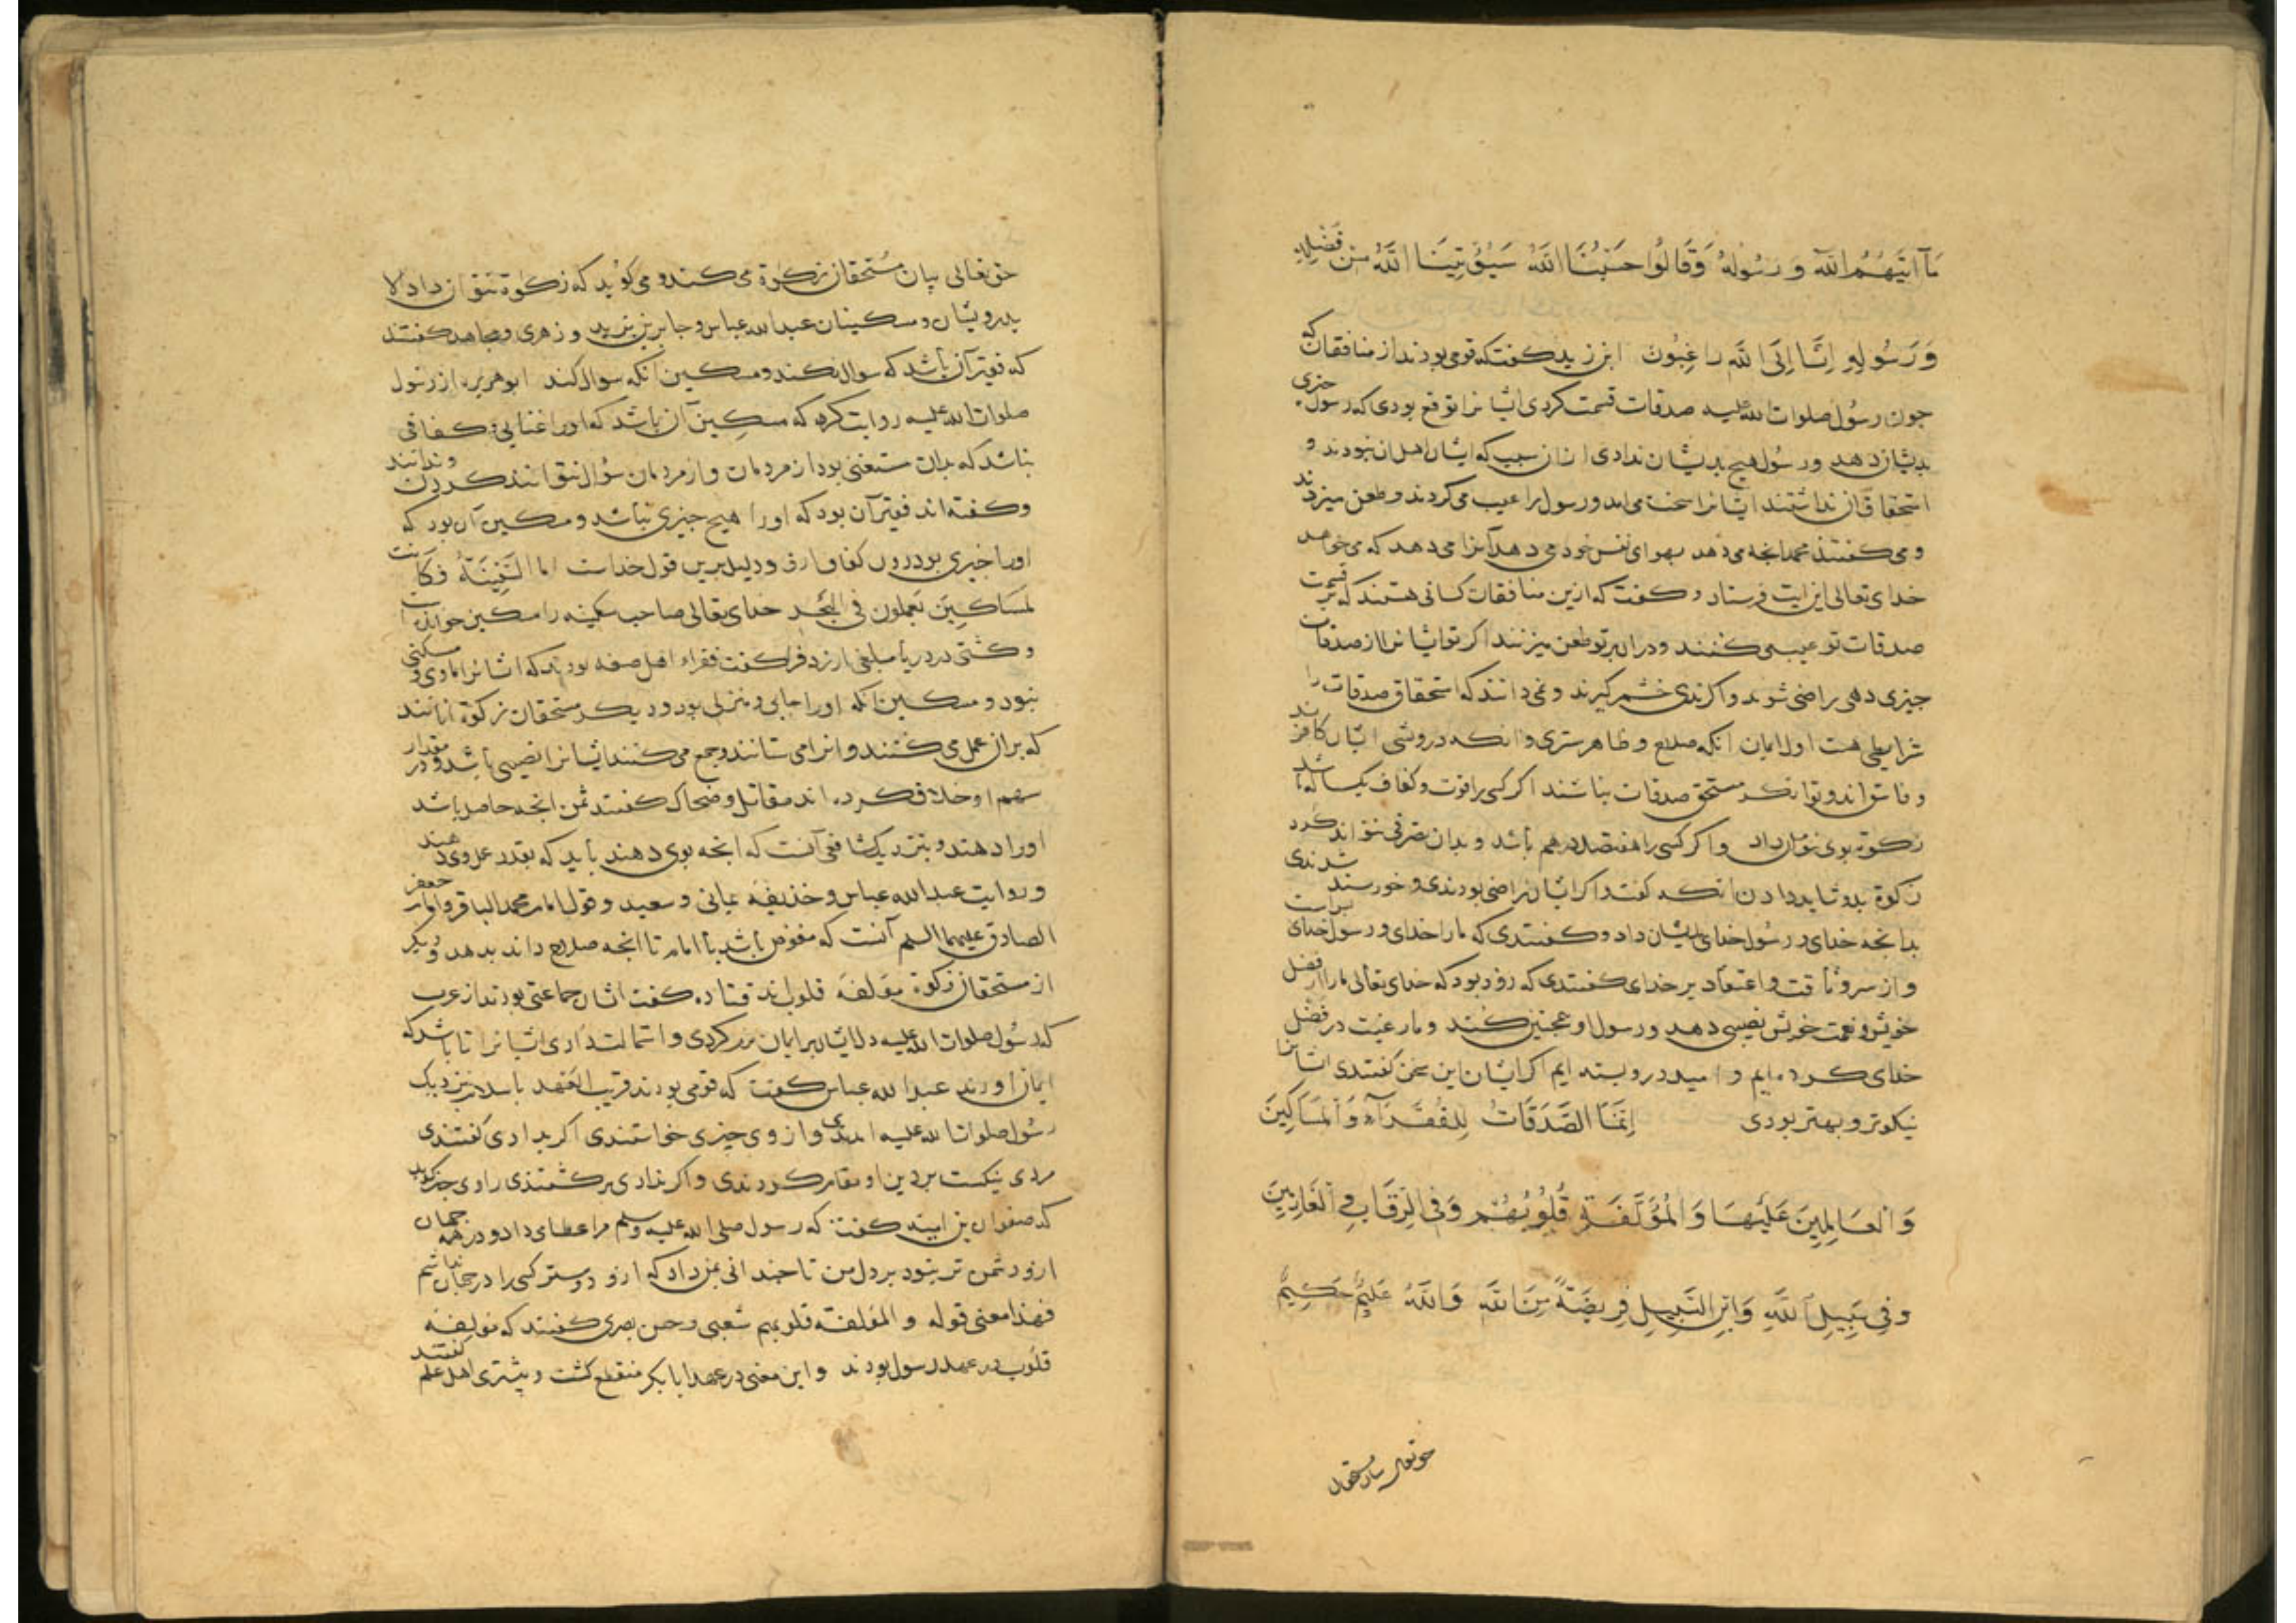 مَآ اٰتٰیهُمُ اللّٰهُ وَ رَسُولُهُ وَقَالُوا حَسْبُنَا اللّٰهُ سَیُؤْتِینَا اللّٰهُ مِنْ فَضْلِهِ
وَ رَسُولِهِ اِنَّا اِلَی اللّٰهِ رَاغِبُونَ ابن زید کفت که قومی بودند از منافقان که
جون رسول صلوات الله علیه صدقات قسمت کردی ایشانرا توقع بودی که رسول جیزی
بدیشان دهد و رسول هیج بدیشان ندادی از ان سبب که ایشان اهل ان نبودند و
استحقاق ان نداشتند ایشانرا سخت می امد و رسول را عیب می کردند و طعن میزدند
و می کفتند محمد انجه می دهد بهوای نفس خود می دهد آنرا می دهد که می خواهد
خدای تعالی این ایت فرستاد و کفت که ازین منافقان کسانی هستند که بر قسمت
صدقات تو عیب می کنند و در ان بر تو طعن میزنند اکر تو ایشانرا از صدقات
جیزی دهی راضی شوند و اکر ندهی خشم کیرند و نمی دانند که استحقاق صدقات را
شرایطی هست اول ایمان انکه صلاح و ظاهر ستری و انکه درویشی ایشان کافرند
و فاسق اند و توانکر مستحق صدقات نباشند اکر کسی را قوت و کفاف یکساله باشد
زکوة بوی نتوان داد و اکر کسی را هفتصد درهم باشد و بدان تصرفی نتواند کرد
زکوة بدو شاید دادن انکه کفت و اکر ایشان راضی بودندی و خورسند شدندی
بدانجه خدای و رسول خدای بدیشان داد و کفتندی که ما را خدای و رسول خدای بس است
و از سر وثاقت و اعتماد بر خدای کفتندی که زود بود که خدای تعالی ما را از فضل
خویش و نعمت خویش نصیبی دهد و رسول او همجنین کند و ما رغبت در فضل
خدای کرده ایم و امید درو بسته ایم اکر ایشان این سخن کفتندی ایشانرا
نیکوتر و بهتر بودی اِنَّمَا الصَّدَقَاتُ لِلْفُقَرَآءِ وَالْمَسَاکِینَ
وَالْعَامِلِینَ عَلَیْهَا وَالْمُؤَلَّفَةِ قُلُوبُهُمْ وَفِی الرِّقَابِ وَالْغَارِمِینَ
وَفِی سَبِیلِ اللّٰهِ وَابْنِ السَّبِیلِ فَرِیضَةً مِنَ اللّٰهِ وَاللّٰهُ عَلِیمٌ حَکِیمٌ
حق تعالی بیان مستحقان
حق تعالی بیان مستحقان زکوة می کند و می کوید که زکوة نتوان داد الا
بدرویشان و مسکینان عبدالله عباس و جابر بن یزید و زهری و مجاهد کفتند
که فقیر آن باشد که سوال نکند و مسکین انکه سوال کند ابوهریره از رسول
صلوات الله علیه روایت کرد که مسکین آن باشد که او را غنایی و کفافی
نباشد که بدان مستغنی بود از مردمان و از مردمان سؤال نتوانند کردن و ندانند
و کفته اند فقیر آن بود که او را هیج جیزی نباشد و مسکین آن بود که
او را جیزی بود دون کفاف او و دلیل برین قول خداست اما السَّفِینَةُ فَکَانَتْ
لِمَسَاکِینَ یَعْمَلُونَ فِی الْبَحْرِ خدای تعالی صاحب سفینه را مسکین خواند
و کشتی در دریا مبلغی ارزد فرا کفت فقراء اهل صفه بودند که ایشانرا ماوی و مسکنی
نبود و مسکین انکه او را جایی و منزلی بود و دیکر مستحقان زکوة انانند
که بران عمل می کنند و انرا می ستانند و جمع می کنند ایشانرا نصیبی باشد و در مقدار
سهم او خلاف کرده اند مقاتل و ضحاک کفتند ثمن انجه حاصل باشد
او را دهند و بنزدیک شافعی آنست که انجه بوی دهند باید که بقدر عمل وی دهند
و روایت عبدالله عباس و حذیفه یمانی و سعید و قول امام محمد الباقر و امام جعفر
الصادق علیهما السلم آنست که مفوض باشد با امام تا انجه صلاح داند بدهد و دیکر
از مستحقان زکوة مؤلفة قلوب اند قتاده کفت ایشان جماعتی بودند از عرب
که رسول صلوات الله علیه دل ایشان بر ایمان نرم کردی و استمالت دادی ایشانرا تا باشد که
ایمان اورند عبدالله عباس کفت که قومی بودند قریب العهد باسلام نزدیک
رسول صلوات الله علیه امدندی و از وی جیزی خواستندی اکر بدادی کفتندی
مردی نیکست بر دین او مقام کردندی و اکر ندادی برکشتندی راوی خبر کوید
که صفوان بن امیه کفت که رسول صلی الله علیه وسلم مرا عطای داد و در همه جهان
ازو دشمن تر نبود بر دل من تا جندانی بمن داد که ازو دوستر کسی را در جهان نباشم
فهذا معنی قوله و المؤلفة قلوبهم شعبی و حسن بصری کفتند که مؤلفة
قلوب در عهد رسول بودند و این معنی در عهد ابابکر منقطع کشت و بیشتری اهل علم کفتند